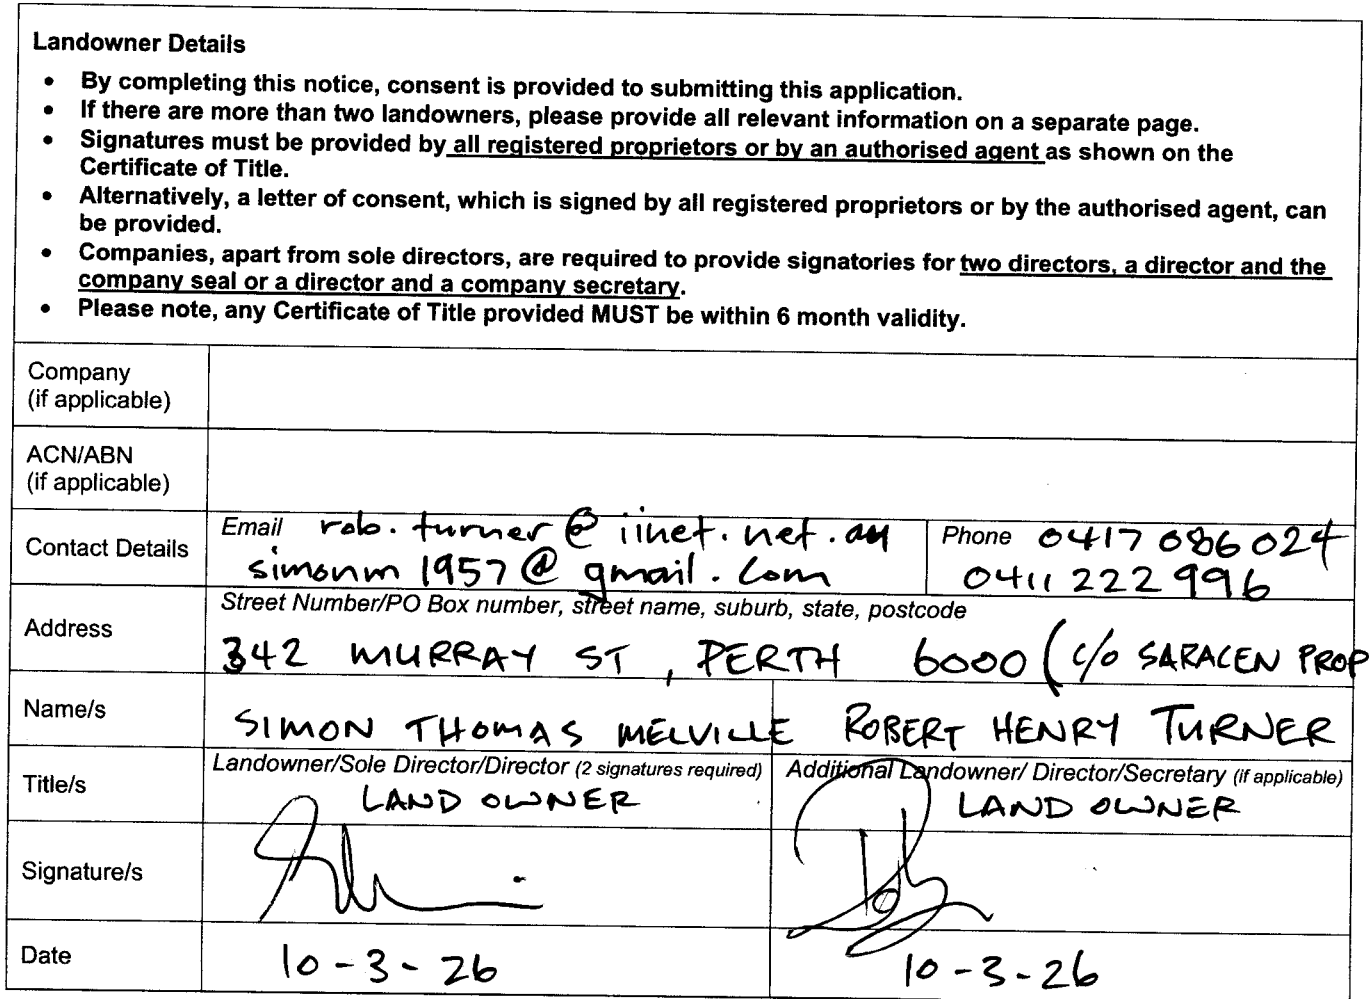 Landowner Details
• By completing this notice, consent is provided to submitting this application.
• If there are more than two landowners, please provide all relevant information on a separate page.
• Signatures must be provided by all registered proprietors or by an authorised agent as shown on the
Certificate of Title.
• Alternatively, a letter of consent, which is signed by all registered proprietors or by the authorised agent, can
be provided.
• Companies, apart from sole directors, are required to provide signatories for two directors, a director and the
company seal or a director and a company secretary.
• Please note, any Certificate of Title provided MUST be within 6 month validity.
Company
(if applicable)
ACN/ABN
(if applicable)
Contact Details
Email rob.turner@iinet.net.au
simonm1957@gmail.com
Phone 0417 086 024
0411 222 996
Address
Street Number/PO Box number, street name, suburb, state, postcode
342 MURRAY ST, PERTH 6000 (c/o SARACEN PROP
Name/s
SIMON THOMAS MELVILLE
ROBERT HENRY TURNER
Title/s
Landowner/Sole Director/Director (2 signatures required)
LAND OWNER
Additional Landowner/ Director/Secretary (if applicable)
LAND OWNER
Signature/s
Date
10-3-26
10-3-26